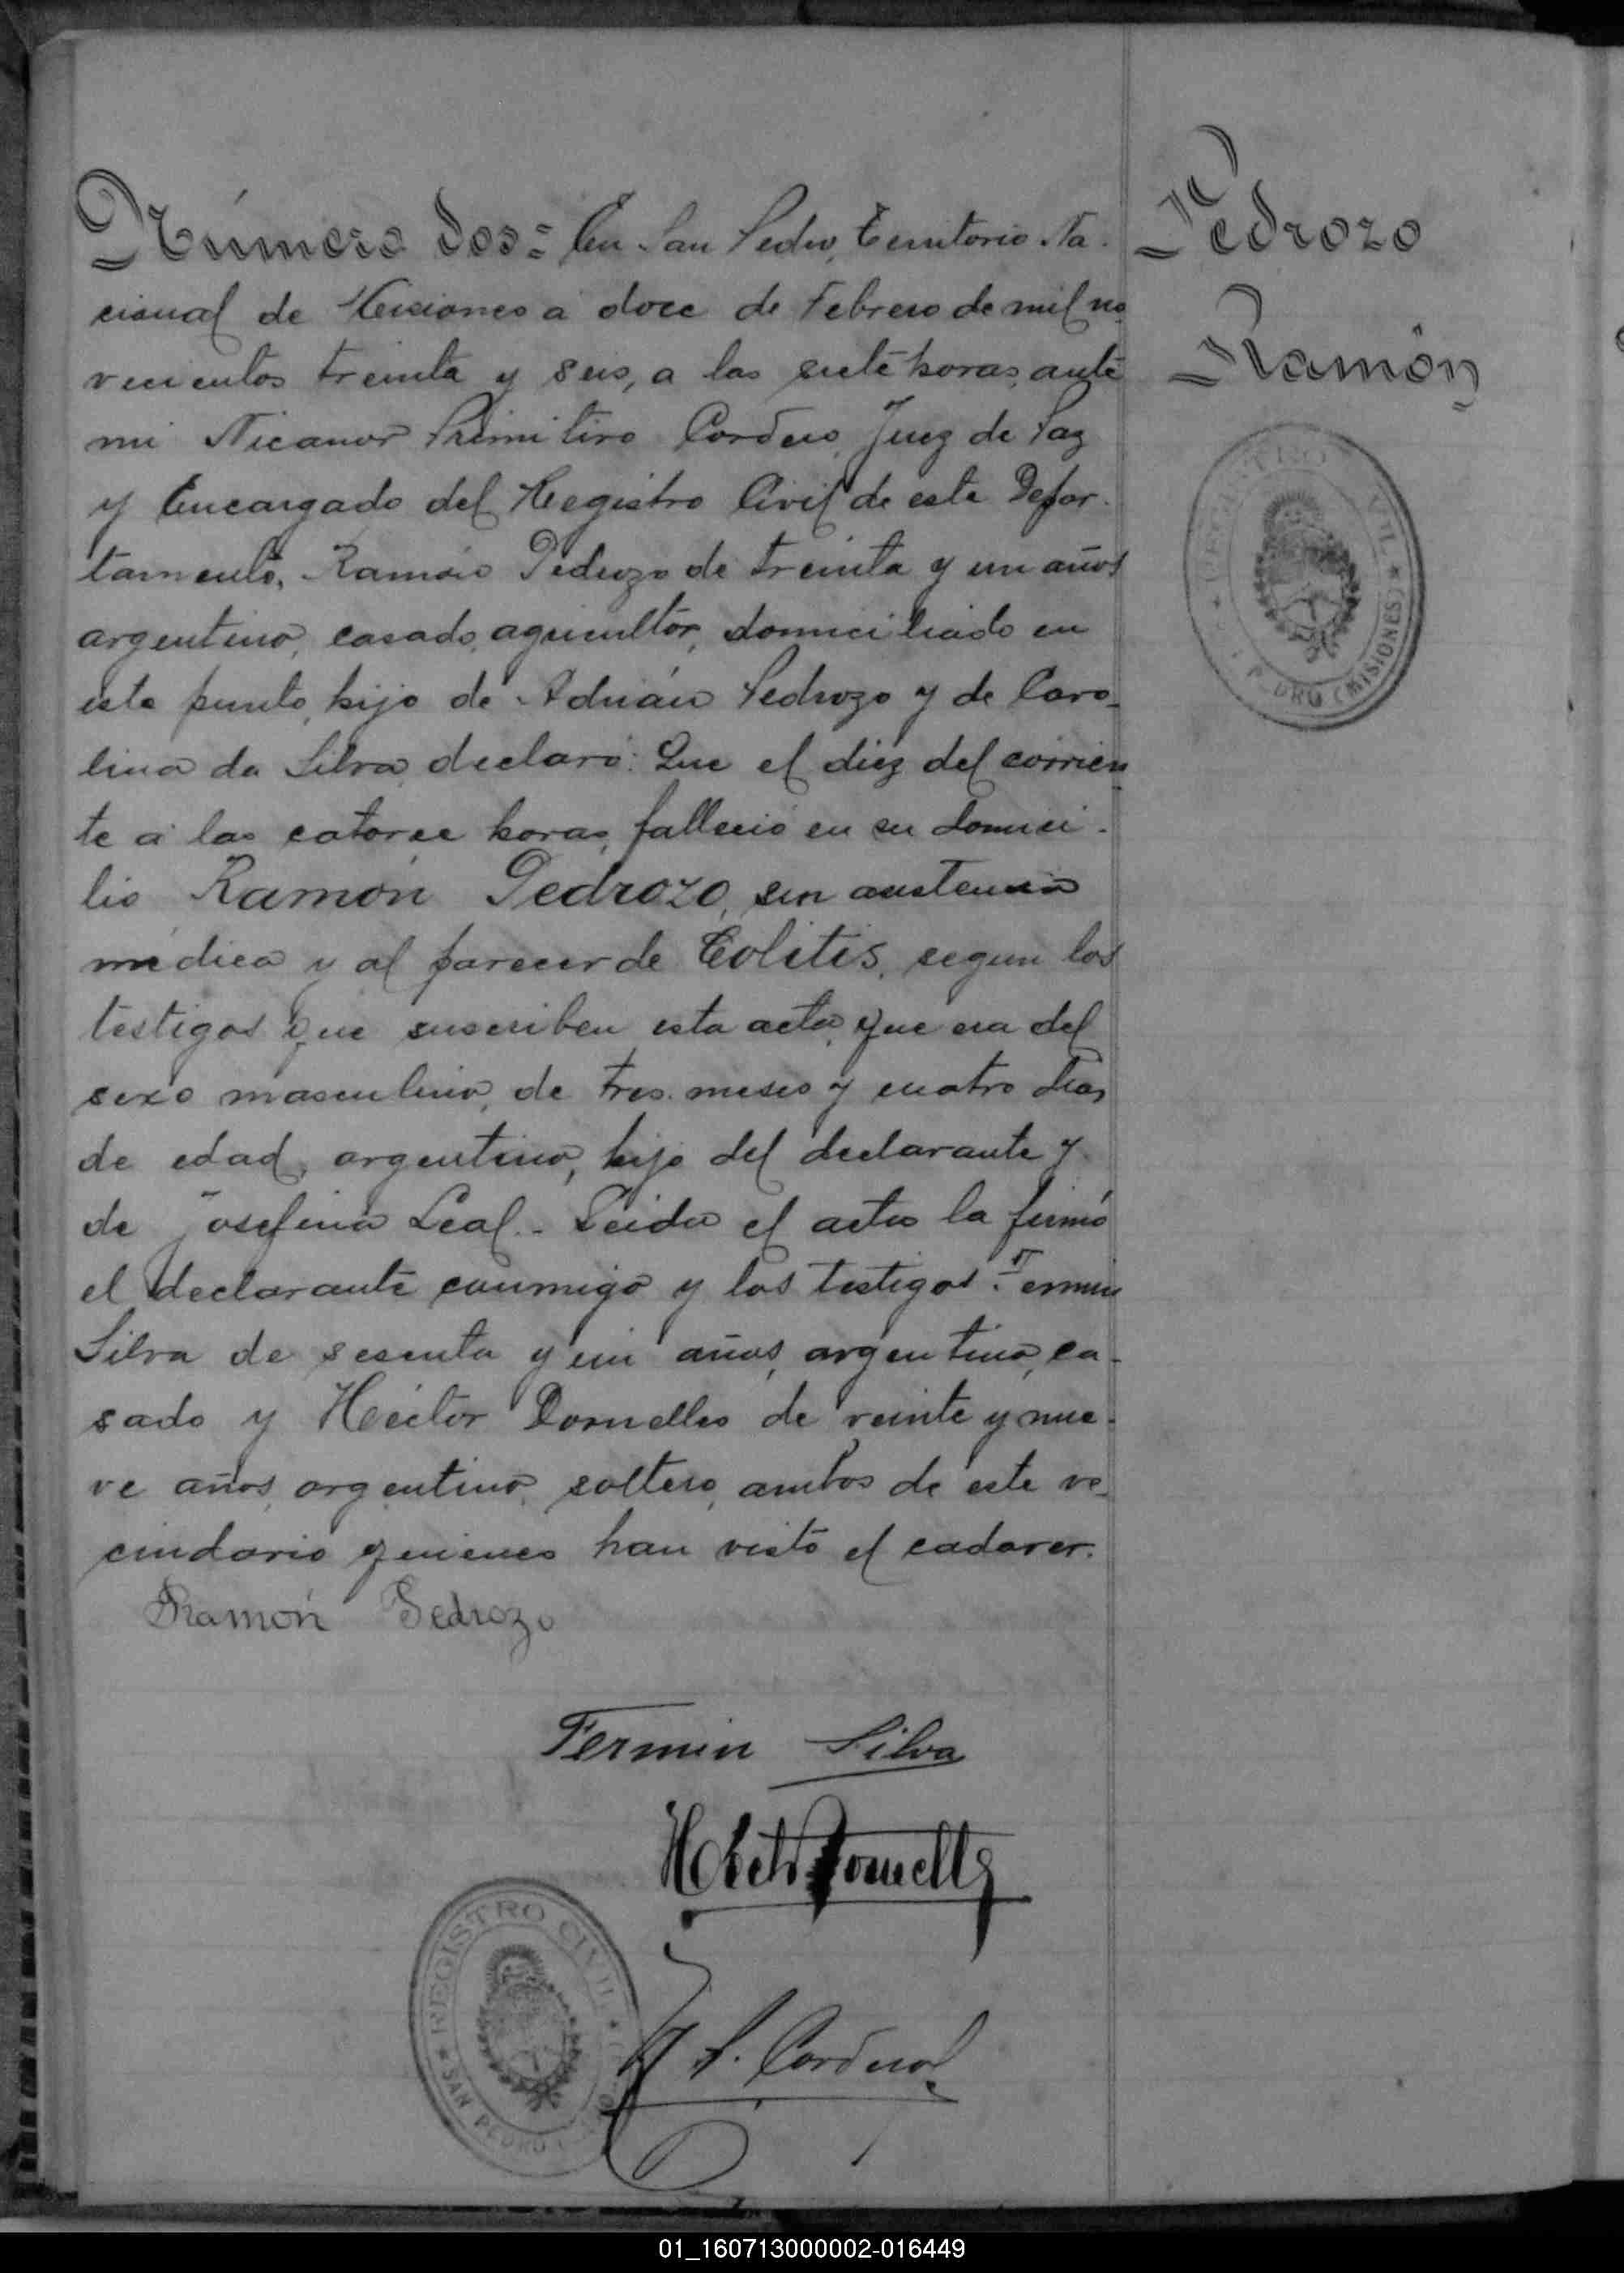 Número dos = En San Pedro, Territorio Na-
cional de Misiones a doce de Febrero de mil no-
vecientos treinta y seis, a las siete horas, ante
mi Nicanor Primitivo Cordero, Juez de Paz
y Encargado del Registro Civil de este Depar-
tamento, Ramón Pedrozo de treinta y un años
argentino, casado, agricultor, domiciliado en
este punto, hijo de Adrián Pedrozo y de Caro-
lina da Silva, declaró: Que el diez del corrien-
te a las catorce horas, falleció en su domici-
lio Ramón Pedrozo, sin asistencia
médica y al parecer de Colitis, segun los
testigos que suscriben esta acta, que era del
sexo masculino, de tres meses y cuatro dias
de edad, argentino, hijo del declarante y
de Josefina Leal.- Leida el acta la firmó
el declarante conmigo y los testigos: Fermin
Silva de sesenta y un años, argentino, ca-
sado y Héctor Dornelles de veinte y nue-
ve años, argentino, soltero, ambos de este ve-
cindario quienes han visto el cadaver.
Ramón Pedrozo
Fermin Silva
Héctor Dornelles
N P. Cordero
Pedrozo
Ramón
REGISTRO CIVIL
PEDRO (MISIONES)
REGISTRO CIVIL
SAN PEDRO
01_160713000002-016449